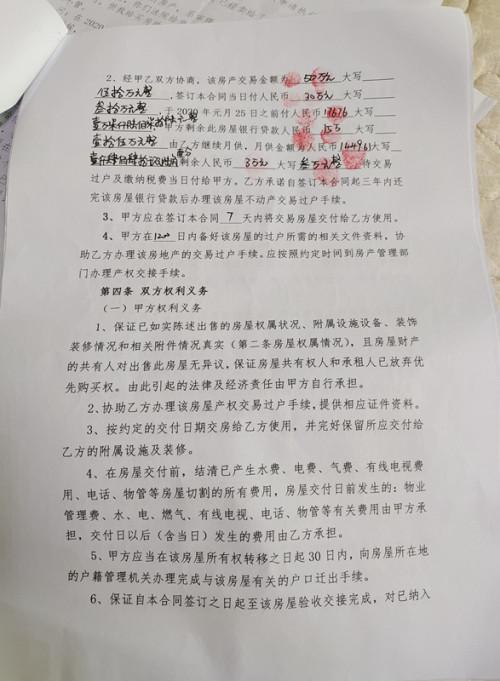 2、经甲乙双方协商,该房产交易金额为 50万元 大写
伍拾万元整,签订本合同当日付人民币 30万元 大写
叁拾万元整 于2020年元月25日之前付人民币 17676 大写
甲方剩余此房屋银行贷款人民币 15万 大写
壹拾伍万元整 由乙方继续月供,月供金额为人民币 1449.61 大写
剩余人民币 3万元 大写 叁万元整 待交易
过户及缴纳税费当日付给甲方。乙方承诺自签订本合同起三年内还
完该房屋银行贷款后办理该房屋不动产交易过户手续。
3、甲方应在签订本合同 7 天内将交易房屋交付给乙方使用。
4、甲方在1200 日内备好该房屋的过户所需的相关文件资料,协
助乙方办理该房地产的交易过户手续。应按照约定时间到房产管理部
门办理产权交接手续。
第四条 双方权利义务
(一)甲方权利义务
1、保证已如实陈述出售的房屋权属状况、附属设施设备、装饰
装修情况和相关附件情况真实(第二条房屋权属情况),且房屋财产
的共有人对出售此房屋无异议,保证房屋共有权人和承租人已放弃优
先购买权。由此引起的法律及经济责任由甲方自行承担。
2、协助乙方办理该房屋产权交易过户手续,提供相应证件资料。
3、按约定的交付日期交房给乙方使用,并完好保留所应交付给
乙方的附属设施及装修。
4、在房屋交付前,结清已产生水费、电费、气费、有线电视费
用、电话、物管等房屋切割的所有费用,房屋交付日前发生的:物业
管理费、水、电、燃气、有线电视、电话、物管等有关费用由甲方承
担,交付日以后(含当日)发生的费用由乙方承担。
5、甲方应当在该房屋所有权转移之日起30日内,向房屋所在地
的户籍管理机关办理完成与该房屋有关的户口迁出手续。
6、保证自本合同签订之日起至该房屋验收交接完成,对已纳入